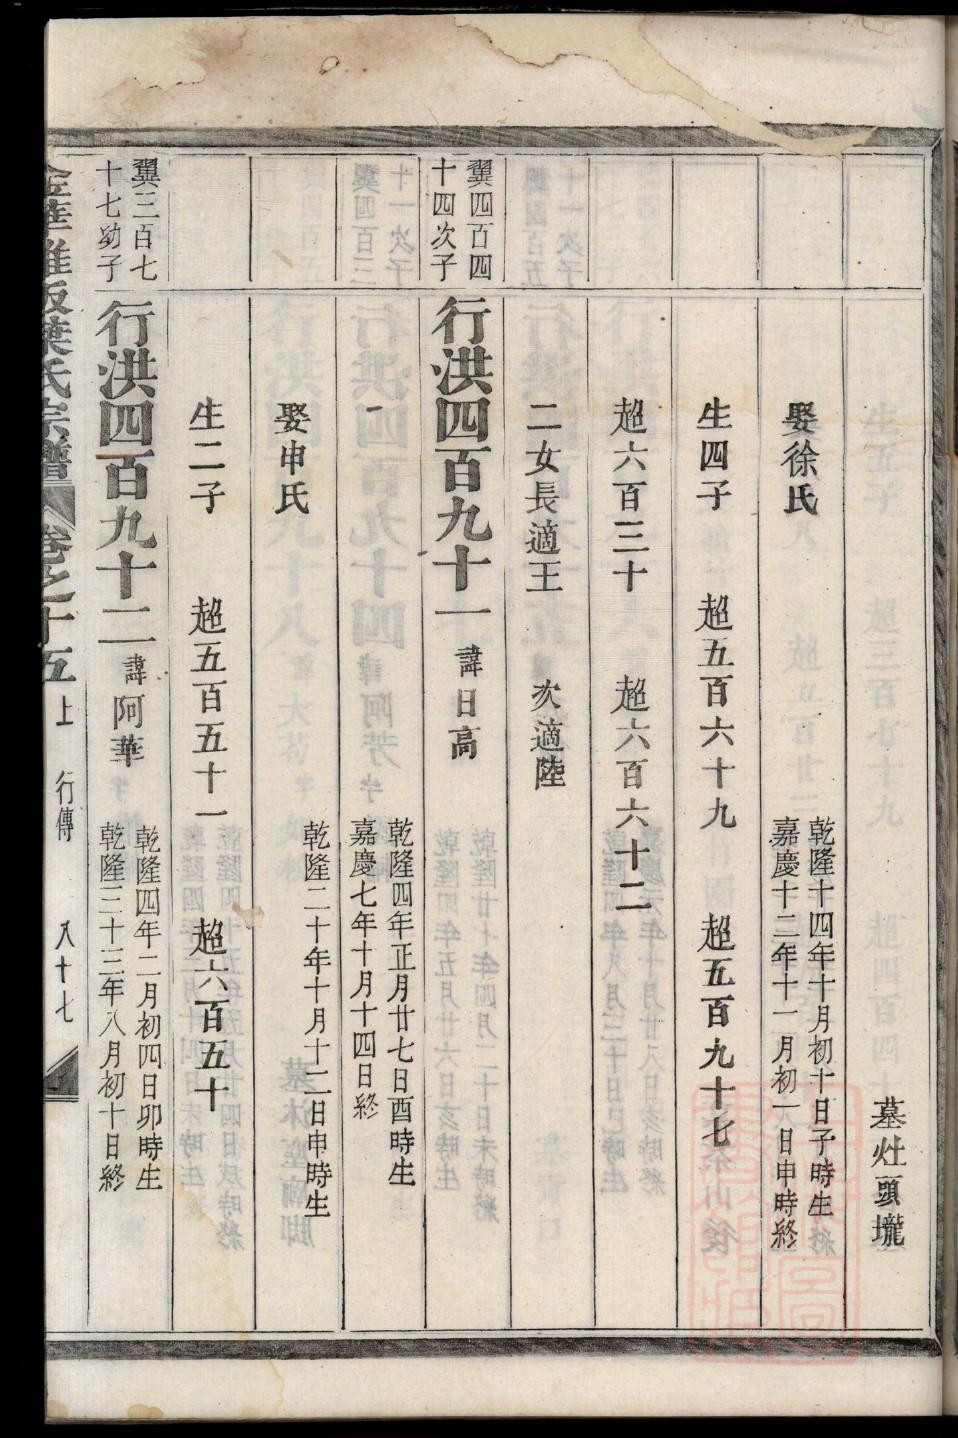 墓灶頭壠
娶徐氏
乾隆十四年十月初十日子時生
嘉慶十二年十一月初一日申時終
生四子 超五百六十九 超五百九十七
超六百三十 超六百六十二
二女長適王 次適陸
翼四百四
十四次子
行洪四百九十一 諱日高
乾隆四年正月廿七日酉時生
嘉慶七年十月十四日終
娶申氏
乾隆二十年十月十二日申時生
生二子 超五百五十一 超六百五十
翼三百七
十七幼子
行洪四百九十二 諱阿華
乾隆四年二月初四日卯時生
乾隆三十三年八月初十日終
金華雅畈葉氏宗譜 卷之十五 上 行傳 八十七